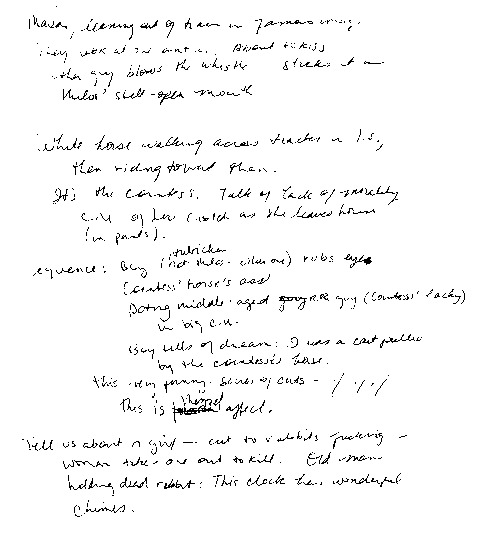 leaning out of train in
They look at one another. About to kiss
other guy blows the whistle sticks it in
Milos' still-open mouth
White horse walking across tracks in l.s.,
then riding toward them.
It's the Countess. Talk of lack of morality
c.u. of her crotch as she leaves horse
(in pants).
equence: Guy (not Milos - other one) rubs
Countess' horse's ass
Doting middle-aged guy (Countess' lacky)
in big c.u.
Guy tells of dream: I was a cart pulled
by the countess's horse.
this very funny series of cuts - / / /
This is affect.
Tell us about a girl - cut to rabbits fucking -
woman takes one out to kill. Old man
holding dead rabbit: This clock has wonderful
chimes.